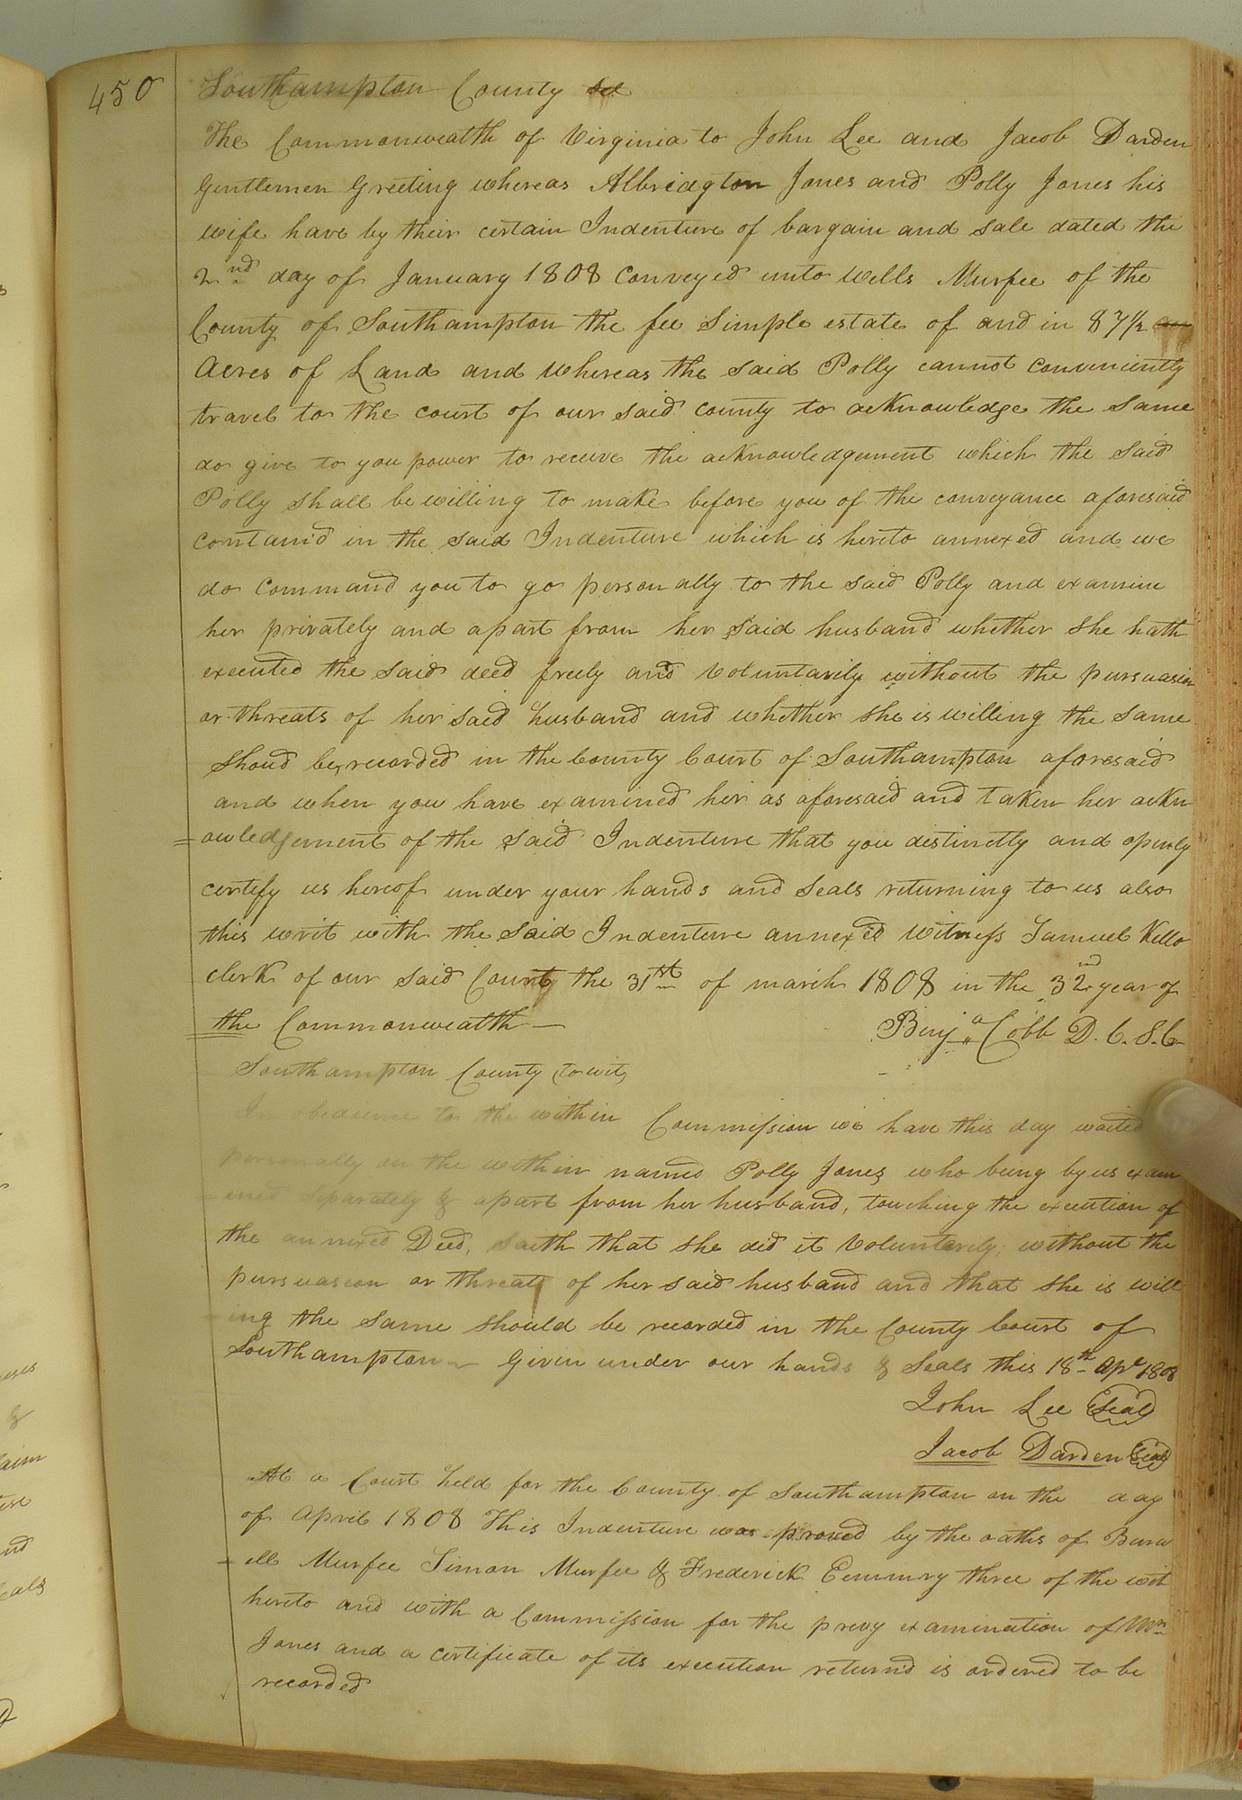 450
Southampton County Sct
The Commonwealth of Virginia to John Lee and Jacob Darden
Gentlemen Greeting whereas Albridgton Jones and Polly Jones his
wife have by their certain Indenture of bargain and sale dated the
2nd day of January 1808 conveyed unto Wells Murfee of the
County of Southampton the fee Simple estate of and in 87½
Acres of Land and Whereas the said Polly cannot conveniently
travel to the court of our said county to acknowledge the same
do give to you power to receive the acknowledgement which the said
Polly shall be willing to make before you of the conveyance aforesaid
contain'd in the said Indenture which is hereto annexed and we
do command you to go personally to the said Polly and examine
her privately and apart from her said husband whether she hath
executed the said deed freely and Voluntarily without the pursuasion
or threats of her said husband and whether she is willing the same
shoud be recorded in the County Court of Southampton aforesaid
and when you have examined her as aforesaid and taken her ackn
=owledgement of the said Indenture that you distinctly and openly
certify us hereof under your hands and seals returning to us also
this writ with the said Indenture annex'd Witness Samuel Kello
clerk of our said Court the 31st of march 1808 in the 32nd year of
the Commonwealth —
Benja Cobb D.C.S.C
Southampton County (to wit)
In obedience to the within Commission we have this day waited
personally on the within named Polly Jones who being by us exam
-ined separately & apart from her husband, touching the execution of
the annexed Deed, saith that she did it Voluntarily; without the
pursuasion or threats of her said husband and that she is will
-ing the same should be recorded in the County Court of
Southampton Given under our hands & Seals this 18th Apl 1808
John Lee (Seal)
Jacob Darden (Seal)
At a Court held for the County of Southampton on the day
of April 1808 This Indenture was proved by the oaths of Burw
-ell Murfee Simon Murfee & Frederick Emmry three of the wit
hereto and with a Commission for the privy examination of
Jones and a certificate of its execution return'd is ordered to be
recorded